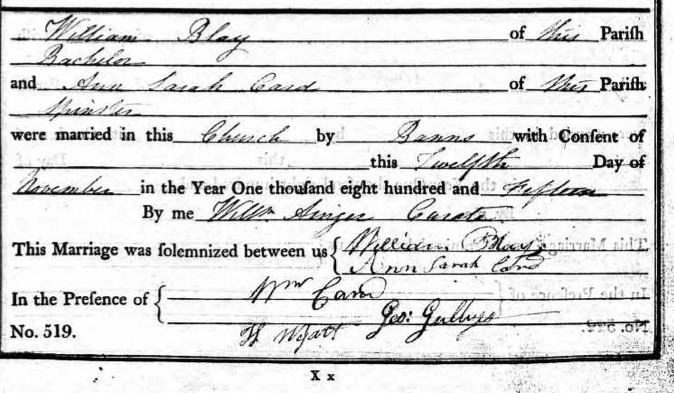 William Blay of this Pariſh
Bachelor
and Ann Sarah Card of this Pariſh
Spinster
were married in this Church by Banns with Conſent of
this Twelfth Day of
November in the Year One thouſand eight hundred and Fifteen
By me Willm Ainger Curate
This Marriage was ſolemnized between us { William Blay
Ann Sarah Card
In the Preſence of { Wm Card
Geo:
No. 519. H Wyatt
X x